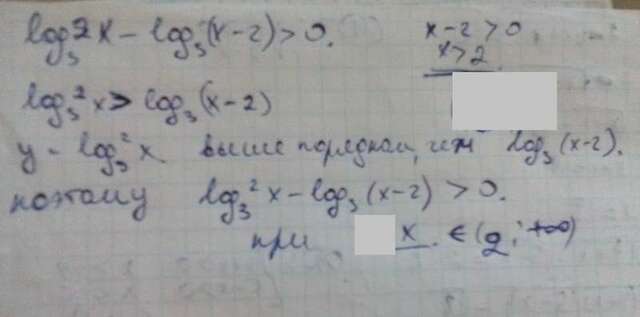 log₃2x − log₃(x−2) > 0.
x−2 > 0
x > 2
log₃²x > log₃(x−2)
y − log₃²x выше порядком, чем log₃(x−2).
поэтому log₃²x − log₃(x−2) > 0.
при x ∈ (2; +∞)